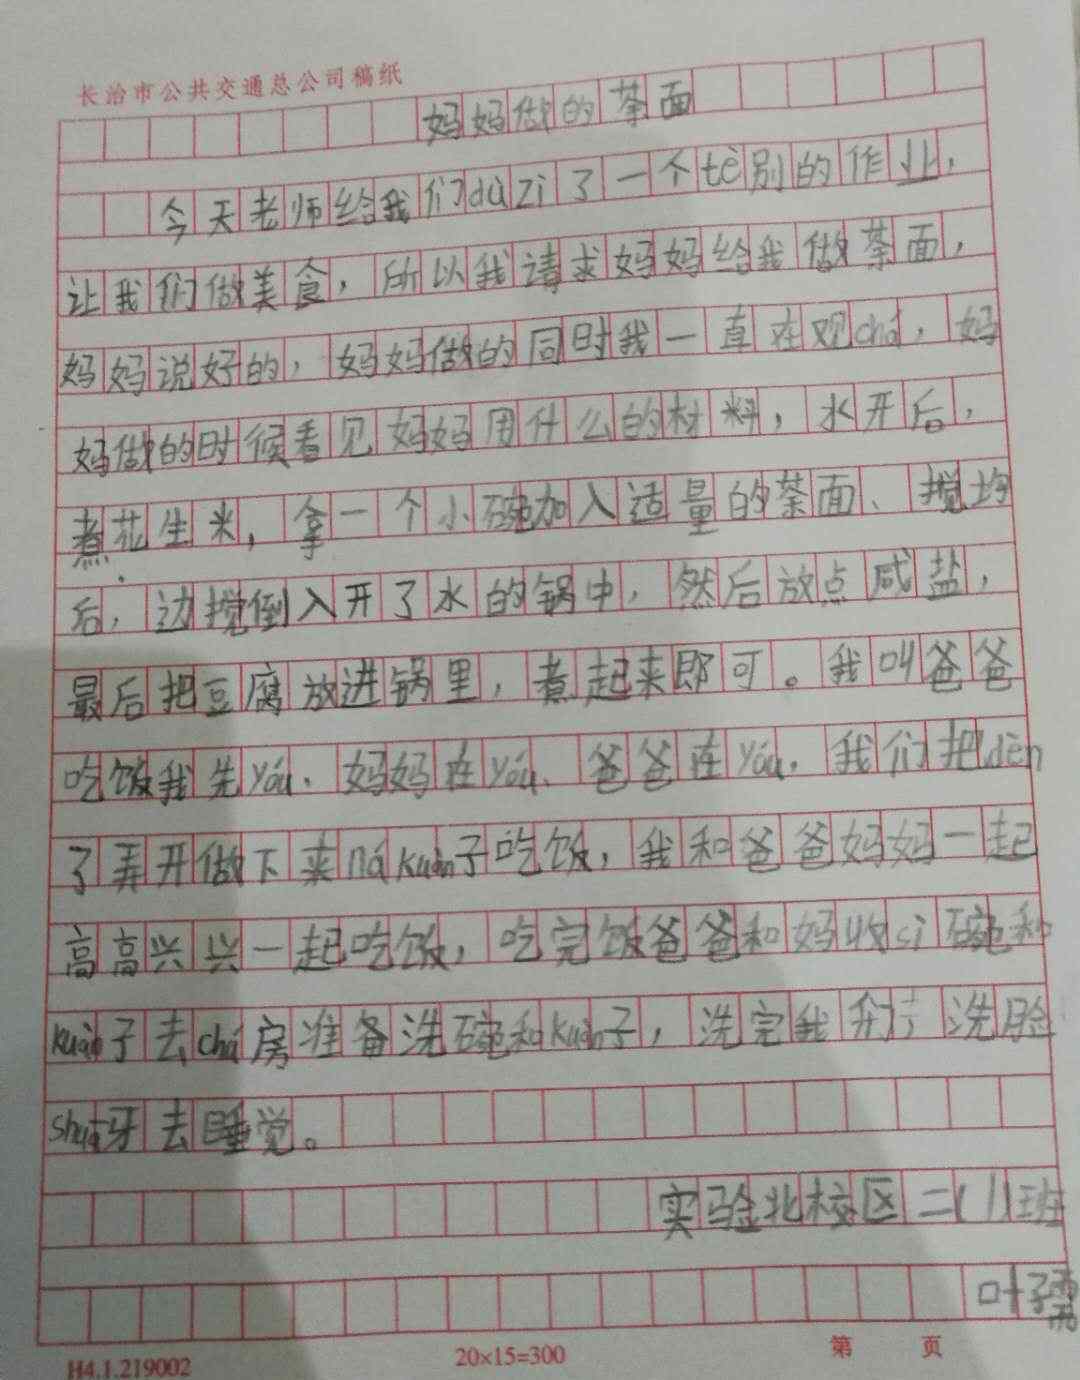 长治市公共交通总公司稿纸
妈妈做的茶面
今天老师给我们dù zi了一个tè别的作业，
让我们做美食，所以我请求妈妈给我做茶面，
妈妈说好的，妈妈做的同时我一直在观chá，妈
妈做的时候看见妈妈用什么的材料，水开后，
煮花生米，拿一个小碗加入适量的茶面、搅均
后，边搅倒入开了水的锅中，然后放点咸盐，
最后把豆腐放进锅里，煮起来即可。我叫爸爸
吃饭我先yáu、妈妈在yáu、爸爸在yáu，我们把dèn
了弄开做下来ná kuàn子吃饭，我和爸爸妈妈一起
高高兴兴一起吃饭，吃完饭爸爸和妈收si碗和
kuàn子去chá房准备洗碗和kuàn子，洗完我们洗脸
shuā牙去睡觉。
实验北校区二(1)班
叶子
H4.1.219002
20×15=300
第 页